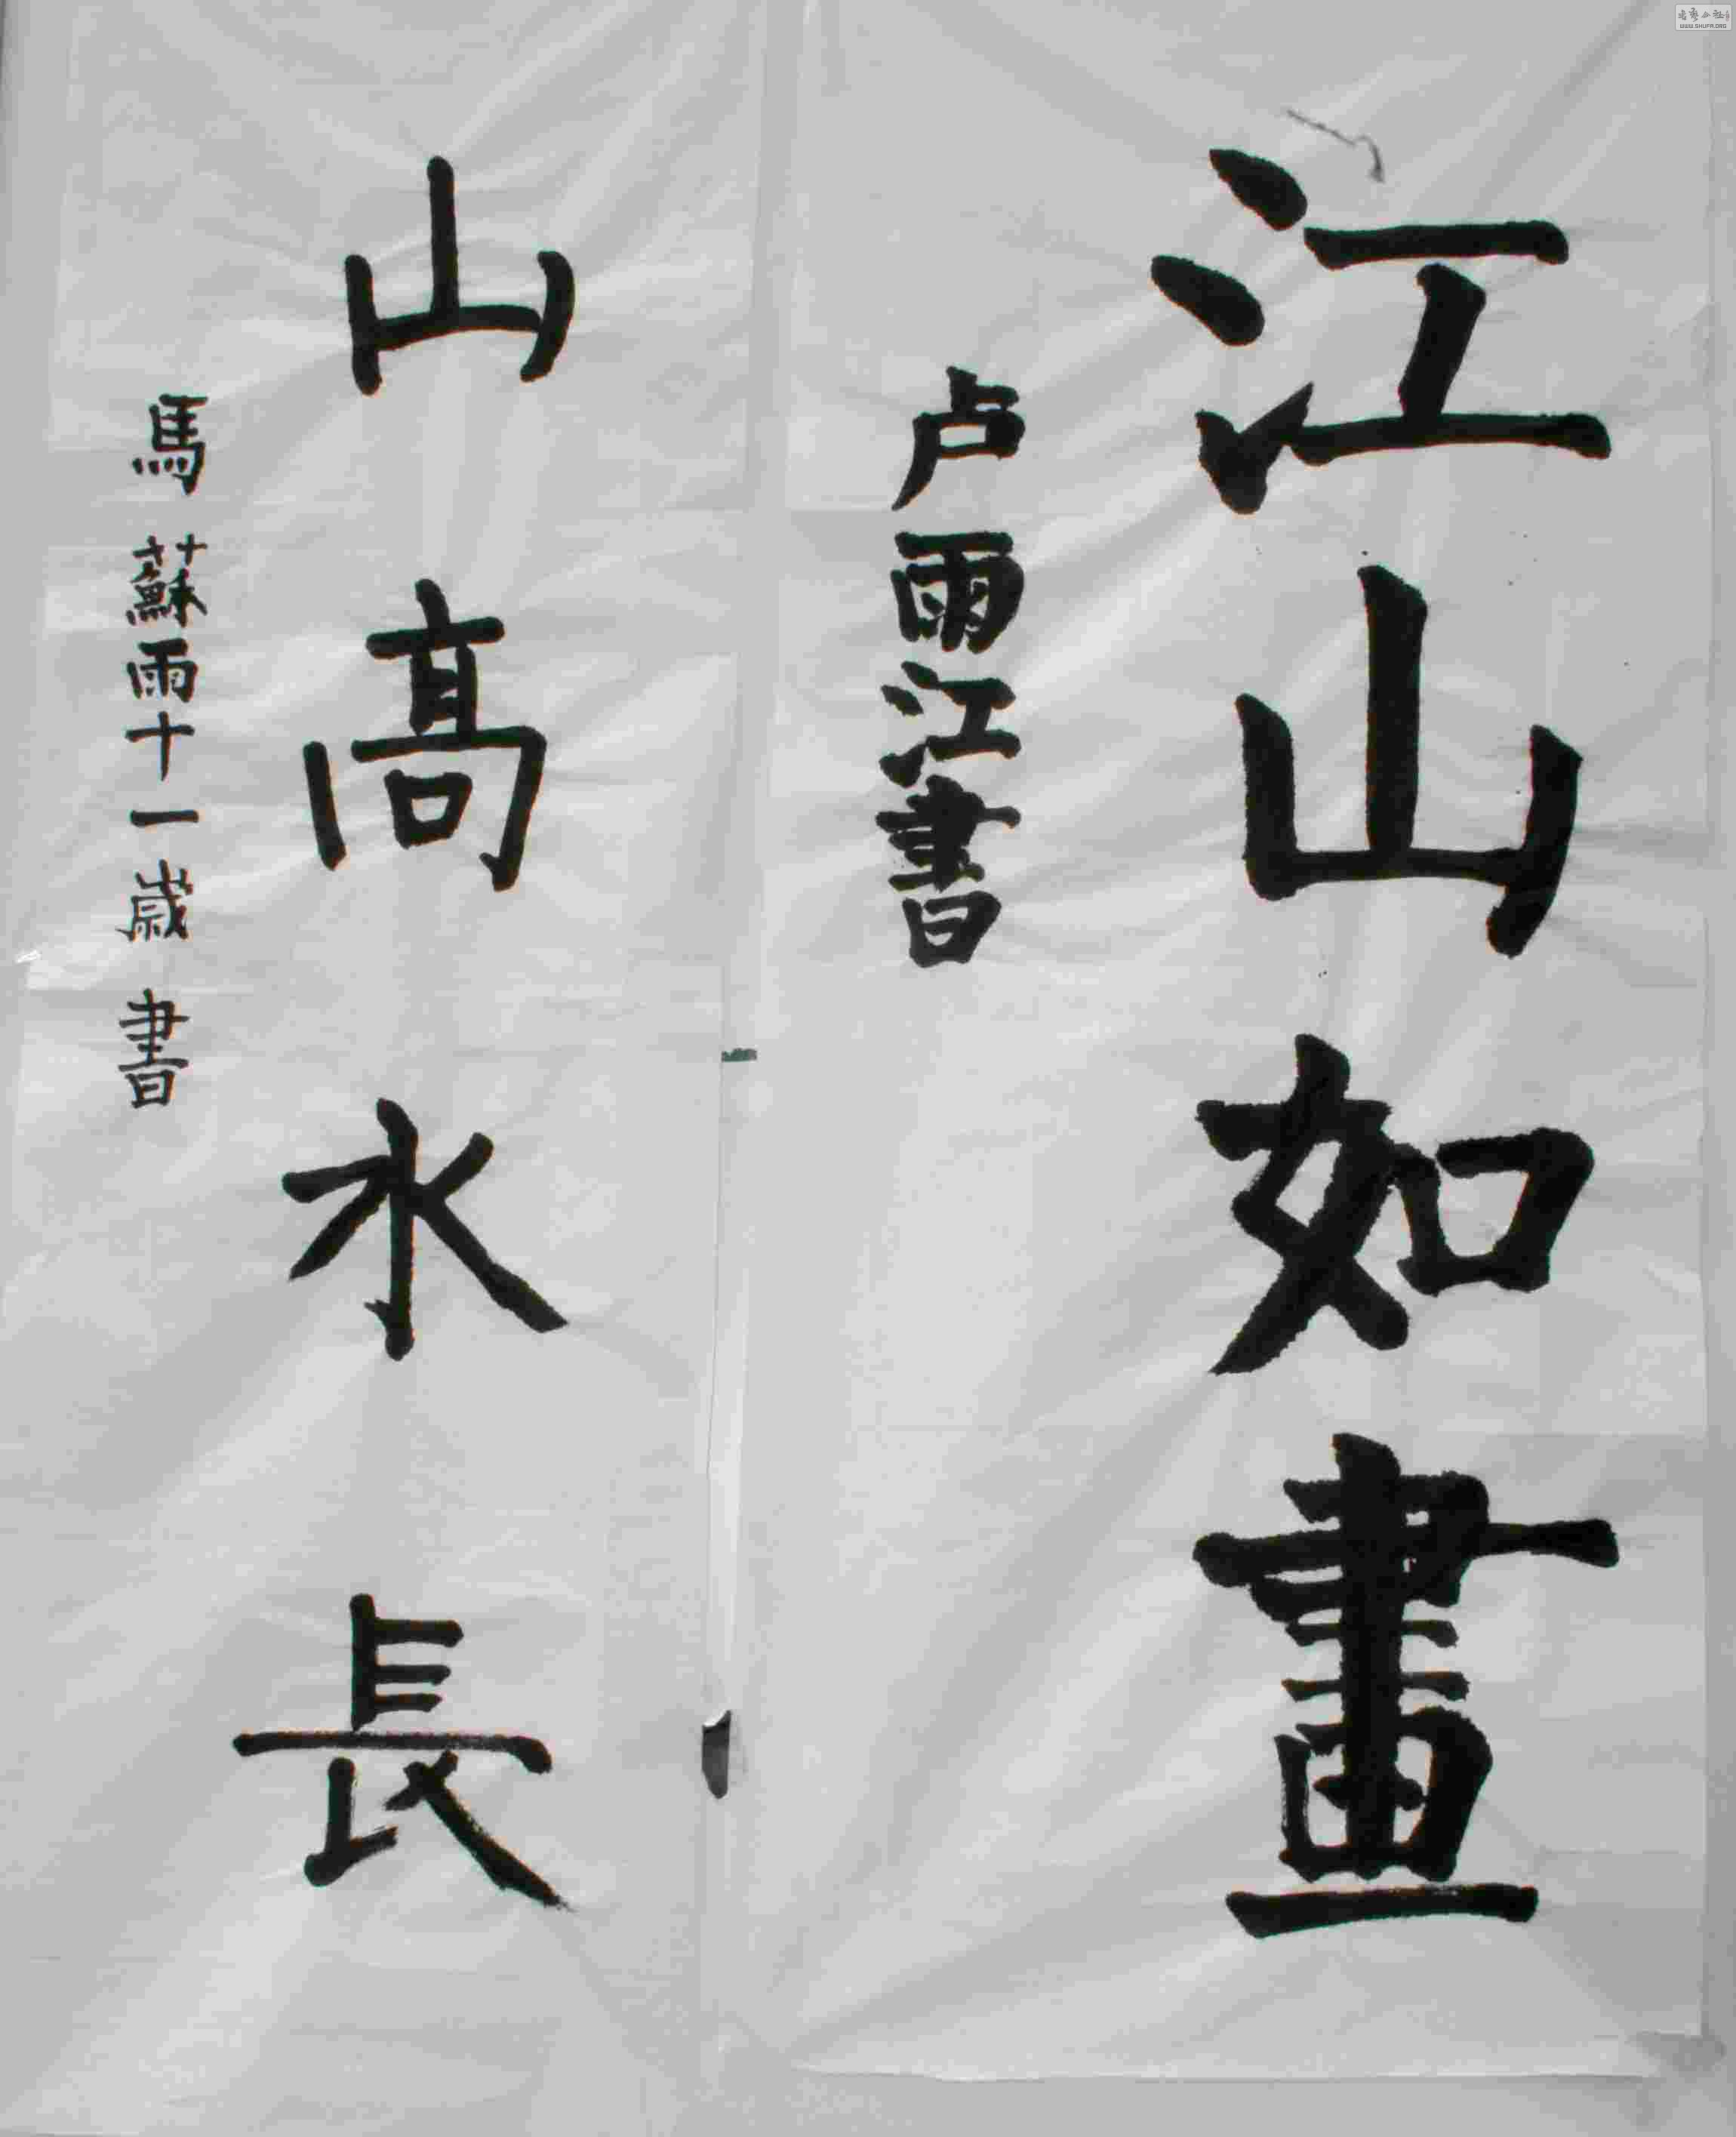 江山如畫
卢雨江書
山高水長
馬蘇雨十一歲書
WWW.SHUFA.ORG